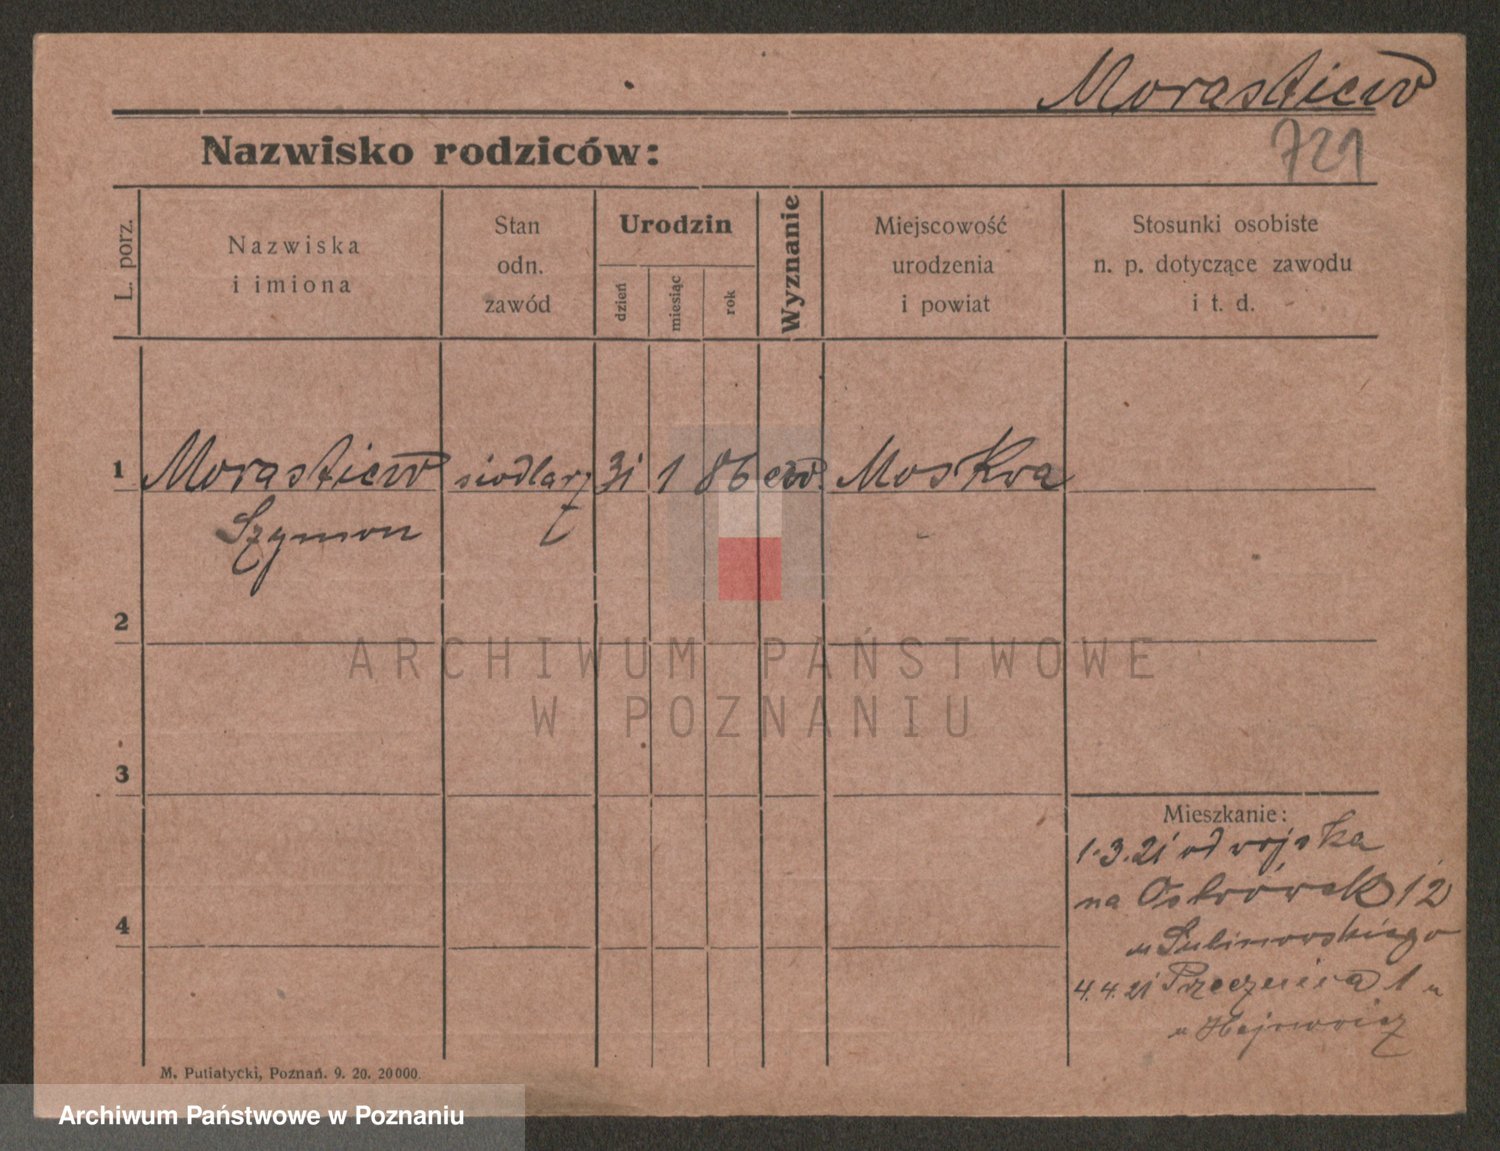 Morastiew
721
Nazwisko rodziców:
L. porz.
Nazwiska
i imiona
Stan
odn.
zawód
Urodzin
dzień
miesiąc
rok
Wyznanie
Miejscowość
urodzenia
i powiat
Stosunki osobiste
n. p. dotyczące zawodu
i t. d.
1 Morastiew siodlarz 31 1 86 ew. Moskva
Szymon
2
3
4
Mieszkanie:
1.3.21 od wojska
na Ostrówek 12
u Sulinowskiego
4.4.21 1
u
M. Putiatycki, Poznań. 9. 20. 20000.
ARCHIWUM PAŃSTWOWE
W POZNANIU
Archiwum Państwowe w Poznaniu